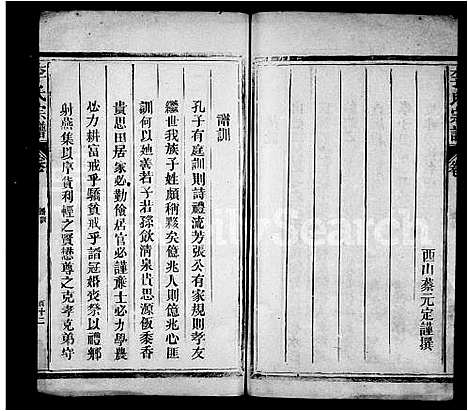 西山蔡元定謹撰
譜訓
孔子有庭訓則詩禮流芳張公有家規則孝友
繼世我族子姓頗稱夥矣億兆人則億兆心匪
訓何以地義若子若孫飲清泉貴思源飯黍香
貴思田居家必勤儉居官必謹雍士必力學農
必力耕富戒乎驕貧戒乎諂冠婚喪祭以禮鄉
射燕集以序貨利輕之賢懋尊之克孝克弟守
宗譜
譜訓